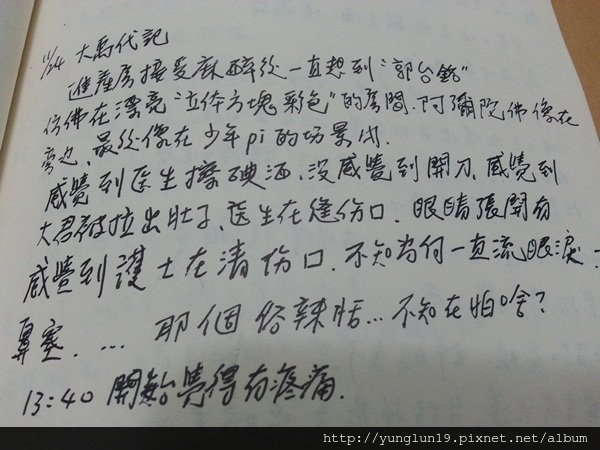 11/24 大馬代記
進產房接受麻醉後一直想到"郭台銘"
彷彿在漂亮"立体方塊彩色"的房間.阿彌陀佛像在
旁边，最後像在少年pi的场景内.
感覺到医生擦碘酒、沒感覺到開刀、感覺到
大君被拉出肚子、医生在縫伤口、眼睛張開有
感覺到護士在清伤口、不知為何一直流眼淚、
鼻塞.... 那個俗辣恬...不知在怕啥？
13:40 開始覺得有疼痛.
http://yunglun19.pixnet.net/album